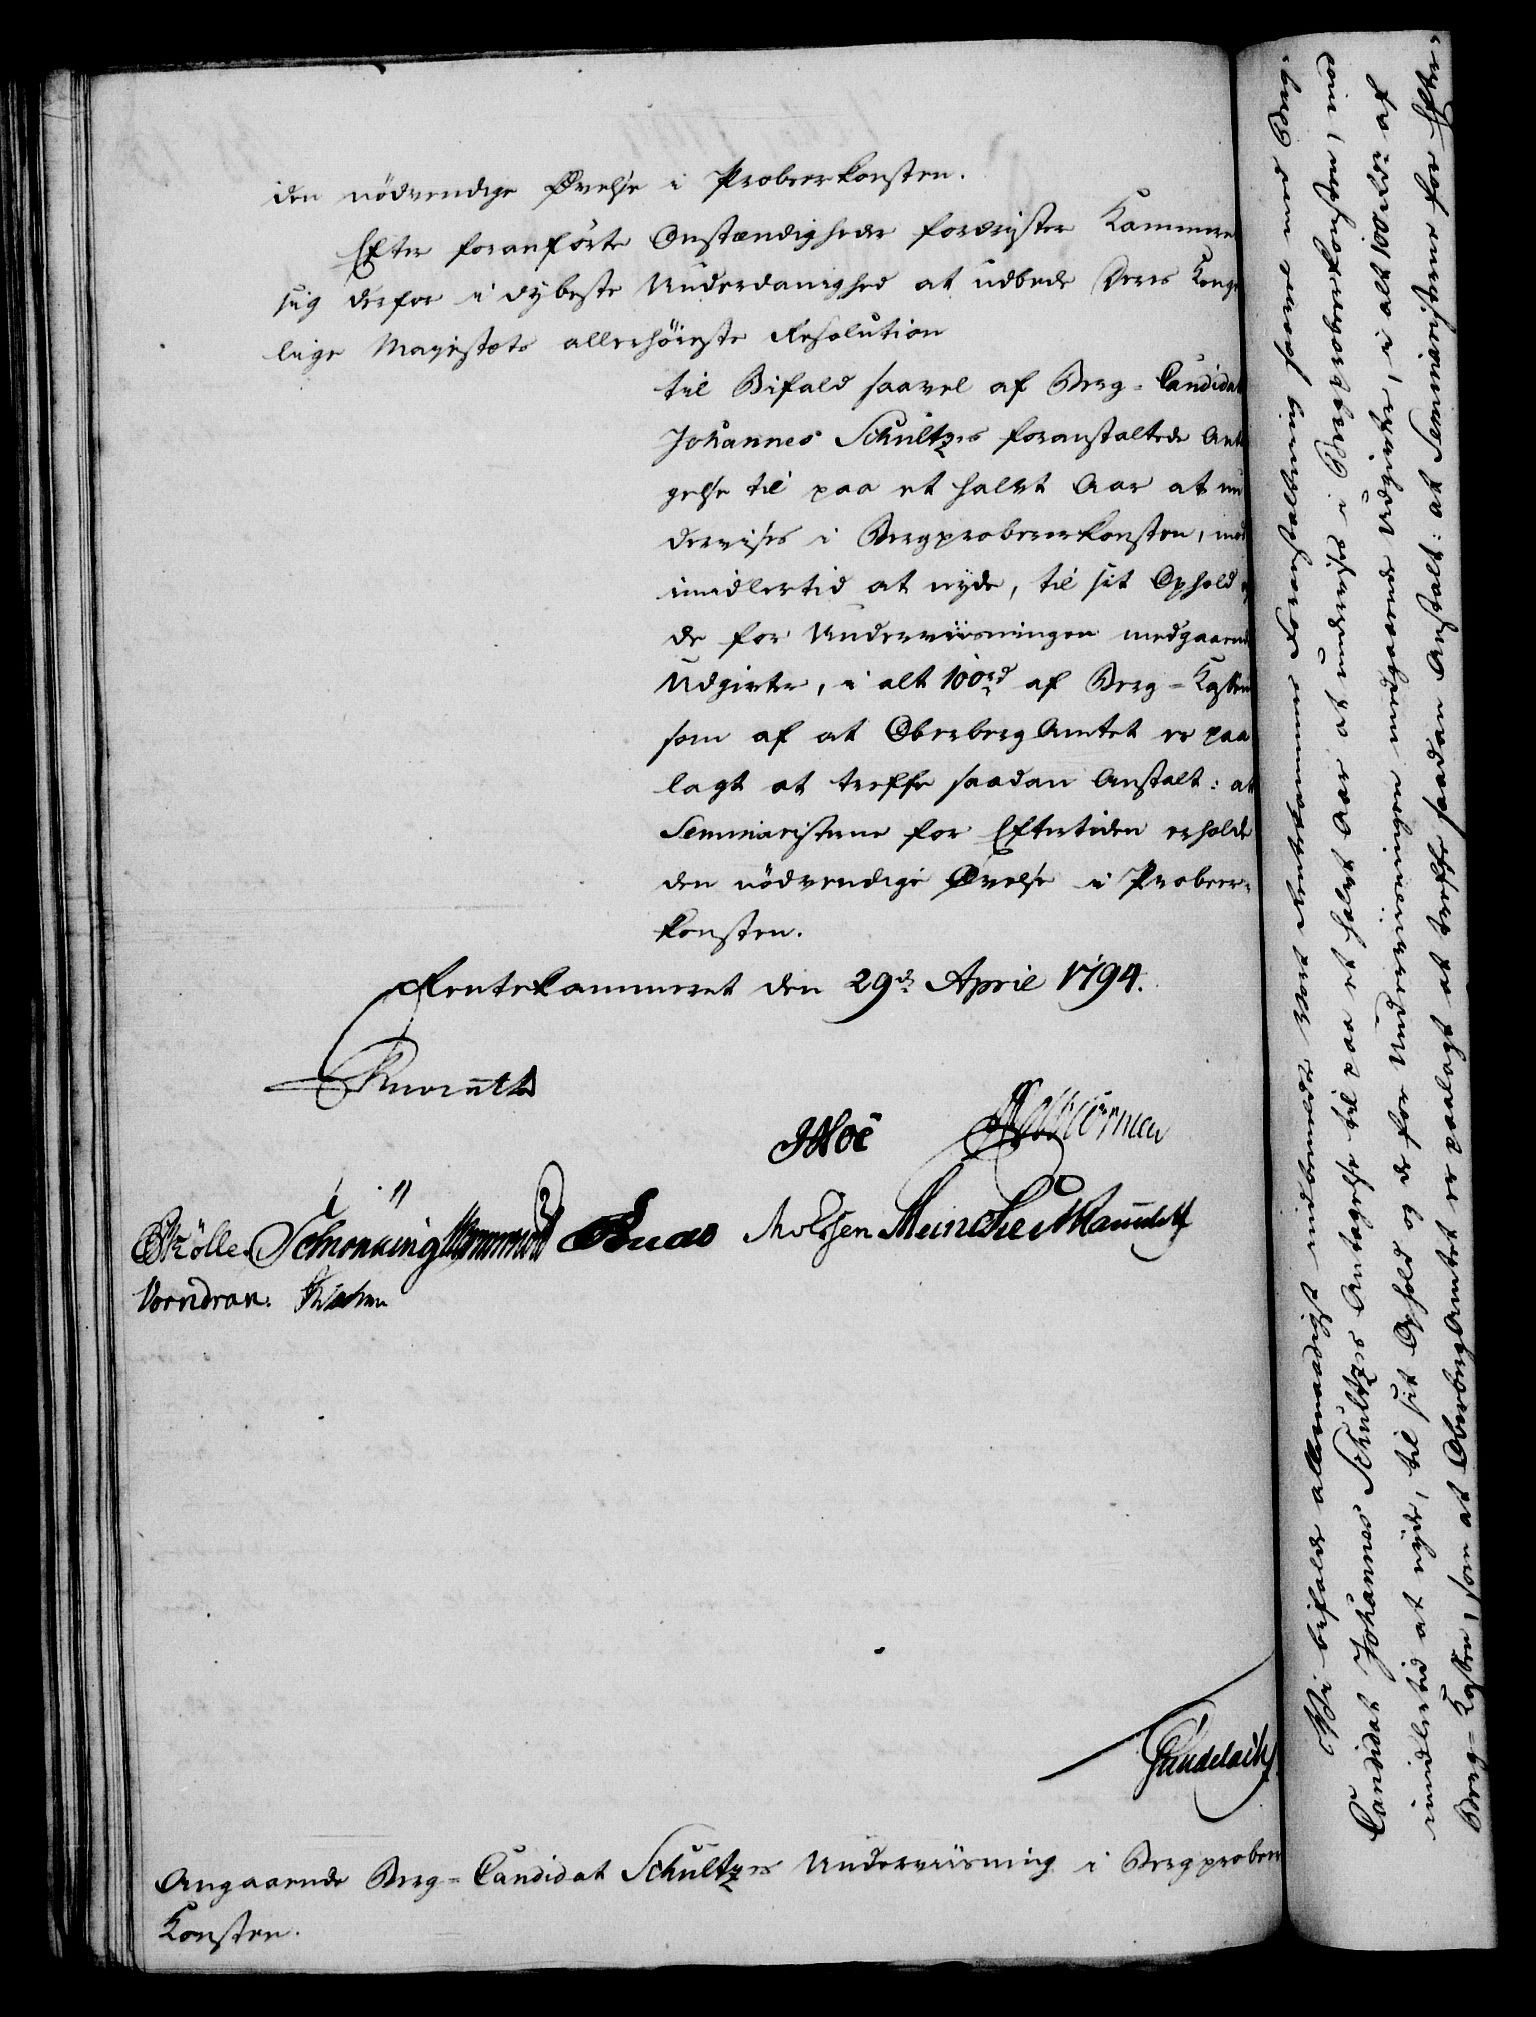 den nödvendige Øvelse i Probeerkonsten.
Efter foranförte Omstændigheder fordrister Kammeret
sig derfor i dybeste Underdanighed at udbede Deres Konge
lige Majestæts allerhöieste Resolution
til Bifald saavel af Berg-Candidat
Johannes Schultzes foranstaltede Anta
gelse til paa et halvt Aar at un
dervises i Bergprobererkonsten, mod
imidlertid at nyde, til sit Ophold og
de for Underviisningen medgaaende
Udgivter, i alt 100 rd af Berg-Kassen
som af at Oberberg Amtet er paa
lagt at treffe saadan Anstalt: at
Seminaristerne for Eftertiden erholde
den nödvendige Øvelse i Probeer-
konsten.
Rentekammeret den 29d April 1794.
Knuth
JHoë Wormen
Schönning Buds Moltsen Meincke Randulff
Vorndran.
Gündelach
Angaaende Berg-Candidat Schultzes Underviisning i Bergprobeer
Konsten.
Vi bifalde allernaadigst midbemeldte Vort Rentekammers Foranstaltning saavel med Berg-
Candidat Johannes Schultzes Antagelse til paa et halvt Aar at undervises i Bergprobeerkonsten, mod
imidlertid at nyde, til sit Ophold og de for Underviisningen medgaaende Udgivter, i alt 100 Rdr af
Berg-Kassen, som at Oberberg Amtet er paalagt at treffe saadan Anstalt: at Seminaristerne for Efter-